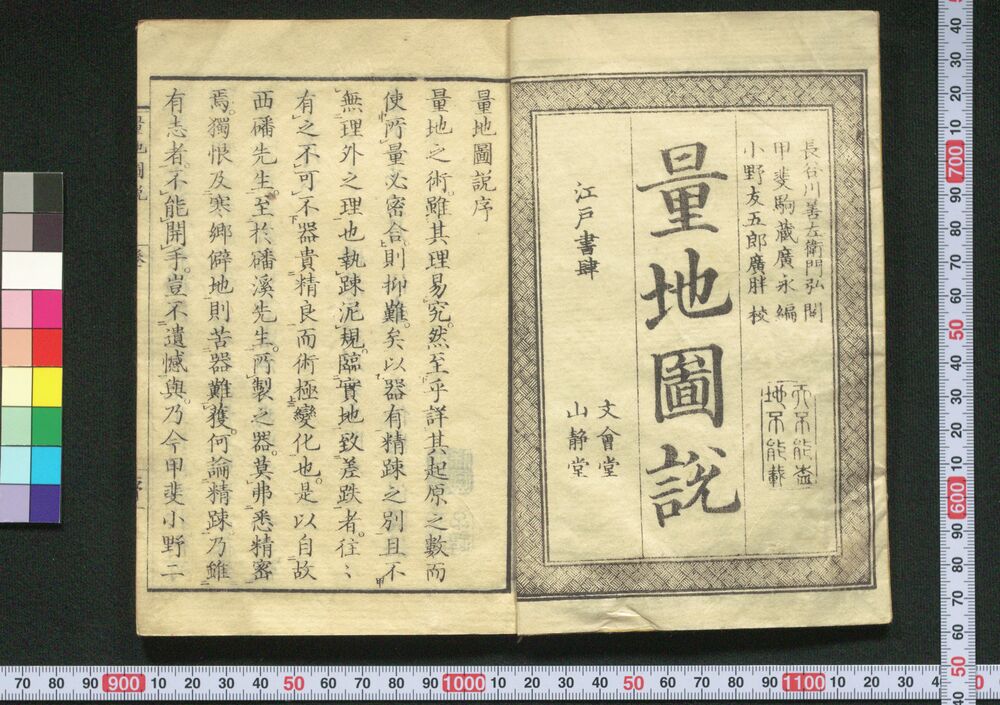 長谷川善左衛門弘閲
甲斐駒蔵廣永編
小野友五郎廣胖校
天不能蓋
地不能載
量地圖說
江戸書肆
文會堂
山静堂
量地圖説序
量地之術。雖其理易究。然至乎詳其起原之數而
使所量必密合。則抑難矣。以器有精踈之別。且不
無理外之理也。執踈泥規。臨實地致差跌者。往〻
有之。不可不器貴精良而術極變化也。是以自故
西磻先生。至於磻溪先生。所製之器。莫弗悉精密
焉。獨恨及寒郷僻地。則苦器難獲。何論精踈。乃雖
有志者。不能開手。豈不遺憾與。乃今甲斐小野二
量地圖説
序
70 80 90 900 10 20 30 40 50 60 70 80 90 1000 10 20 30 40 50 60 70 80 90 1100 10 20 30 40
50 40 30 20 10 700 90 80 70 60 50 40 30 20 10 600 90 80 70 60 50 40